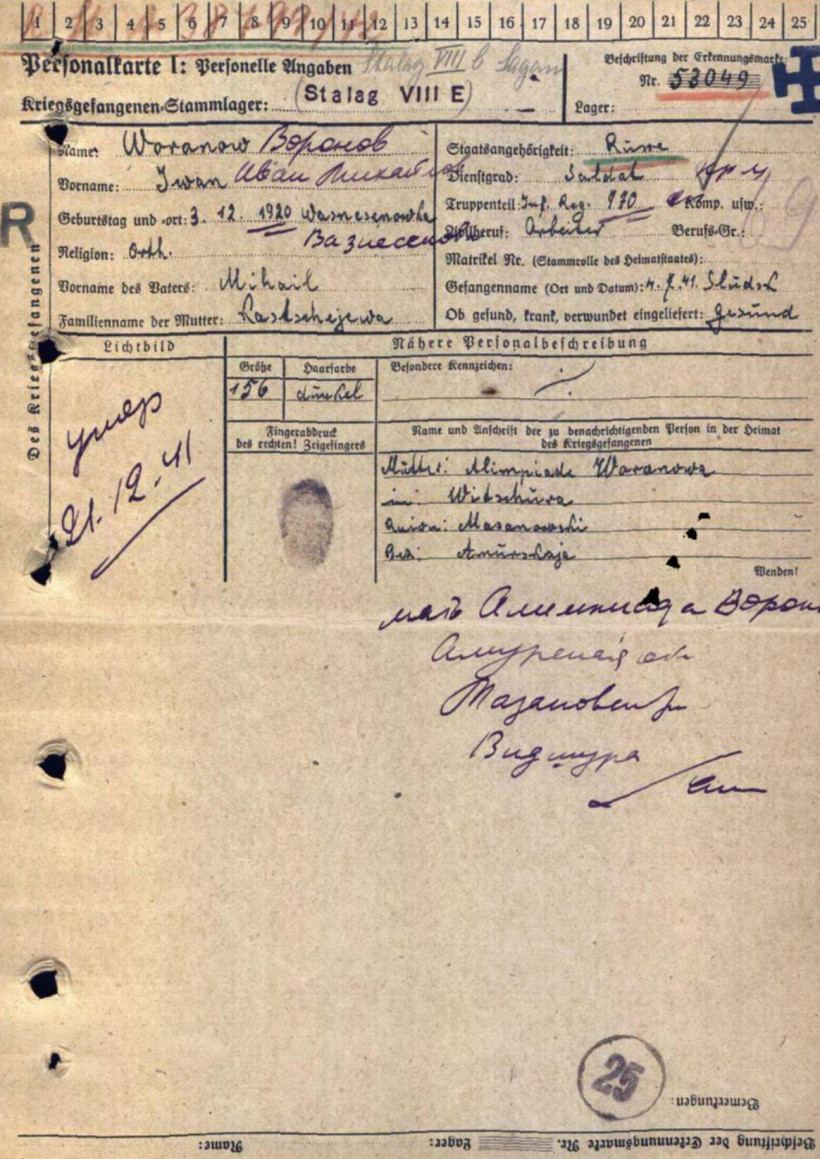 1 2 3 4 5 6 7 8 9 10 11 12 13 14 15 16 17 18 19 20 21 22 23 24 25
Personalkarte I: Personelle Angaben
Stalag VIII b Sagan
Kriegsgefangenen-Stammlager: (Stalag VIII E)
Beschriftung der Erkennungsmarke
Nr. 53049
Lager:
Des Kriegsgefangenen
Name: Woranow Воронов
Vorname: Iwan Иван Михайлов
Geburtstag und -ort: 3. 12. 1920 Wasnesenowka
Вазнесеновк
Religion: Orth.
Vorname des Vaters: Mihail
Familienname der Mutter: Lastschejewa
Staatsangehörigkeit: Russe
Dienstgrad: Soldat
Truppenteil: Inf. Reg. 970 Komp. usw.:
Zivilberuf: Arbeiter Berufs-Gr.:
Matrikel Nr. (Stammrolle des Heimatstaates):
Gefangenname (Ort und Datum): 4. 7. 41. Sludsk
Ob gesund, krank, verwundet eingeliefert: gesund
Lichtbild
умер
21.12.41
Nähere Personalbeschreibung
Größe Haarfarbe Besondere Kennzeichen:
156 dunkel
Fingerabdruck
des rechten! Zeigefingers
Name und Anschrift der zu benachrichtigenden Person in der Heimat
des Kriegsgefangenen
Mutter: Alimpiada Woranowa
in: Witschura
Raion: Masanowski
Bez: Amurskaja
Wenden!
мать Алимпиада Ворон
Амурская об
Мазановский
Видмура
25
Bemerkungen:
Name: Lager: Beschriftung der Erkennungsmarke Nr.